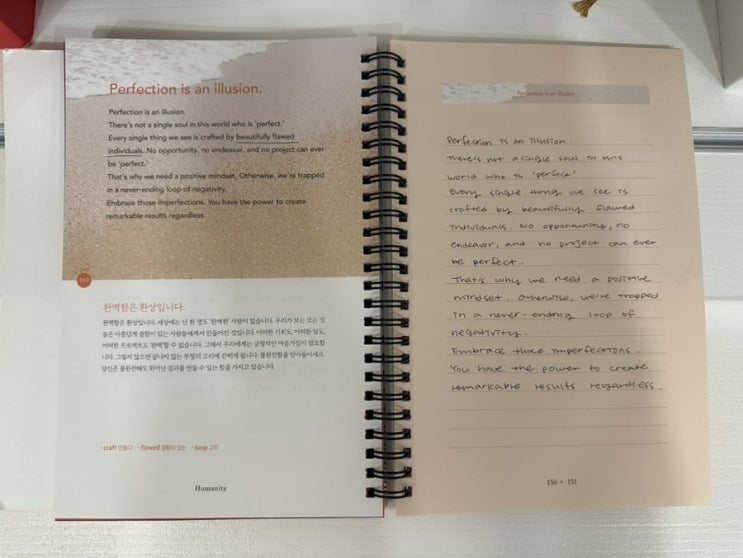 Perfection is an illusion.
Perfection is an illusion.
There's not a single soul in this world who is 'perfect.'
Every single thing we see is crafted by beautifully flawed
individuals. No opportunity, no endeavor, and no project can ever
be 'perfect.'
That's why we need a positive mindset. Otherwise, we're trapped
in a never-ending loop of negativity.
Embrace those imperfections. You have the power to create
remarkable results regardless.
완벽함은 환상입니다.
완벽함은 환상입니다. 세상에는 단 한 명도 '완벽한' 사람이 없습니다. 우리가 보는 모든 것
들은 아름답게 결함이 있는 사람들에게서 만들어진 것입니다. 어떠한 기회도, 어떠한 일도,
어떠한 프로젝트도 '완벽'할 수 없습니다. 그래서 우리에게는 긍정적인 마음가짐이 필요합
니다. 그렇지 않으면 끝나지 않는 부정의 고리에 갇히게 됩니다. 불완전함을 받아들이세요.
당신은 불완전해도 뛰어난 결과를 만들 수 있는 힘을 가지고 있습니다.
· craft 만들다 · flawed 결함이 있는 · loop 고리
Humanity
Perfection is an illusion.
Perfection is an illusion.
There's not a single soul in this
world who is 'perfect'
Every single thing we see is
crafted by beautifully flawed
individuals. No opportunity, no
endeavor, and no project can ever
be perfect.
That's why we need a positive
mindset. Otherwise, we're trapped
in a never-ending loop of
negativity.
Embrace those imperfections.
You have the power to create
remarkable results regardless.
150 • 151